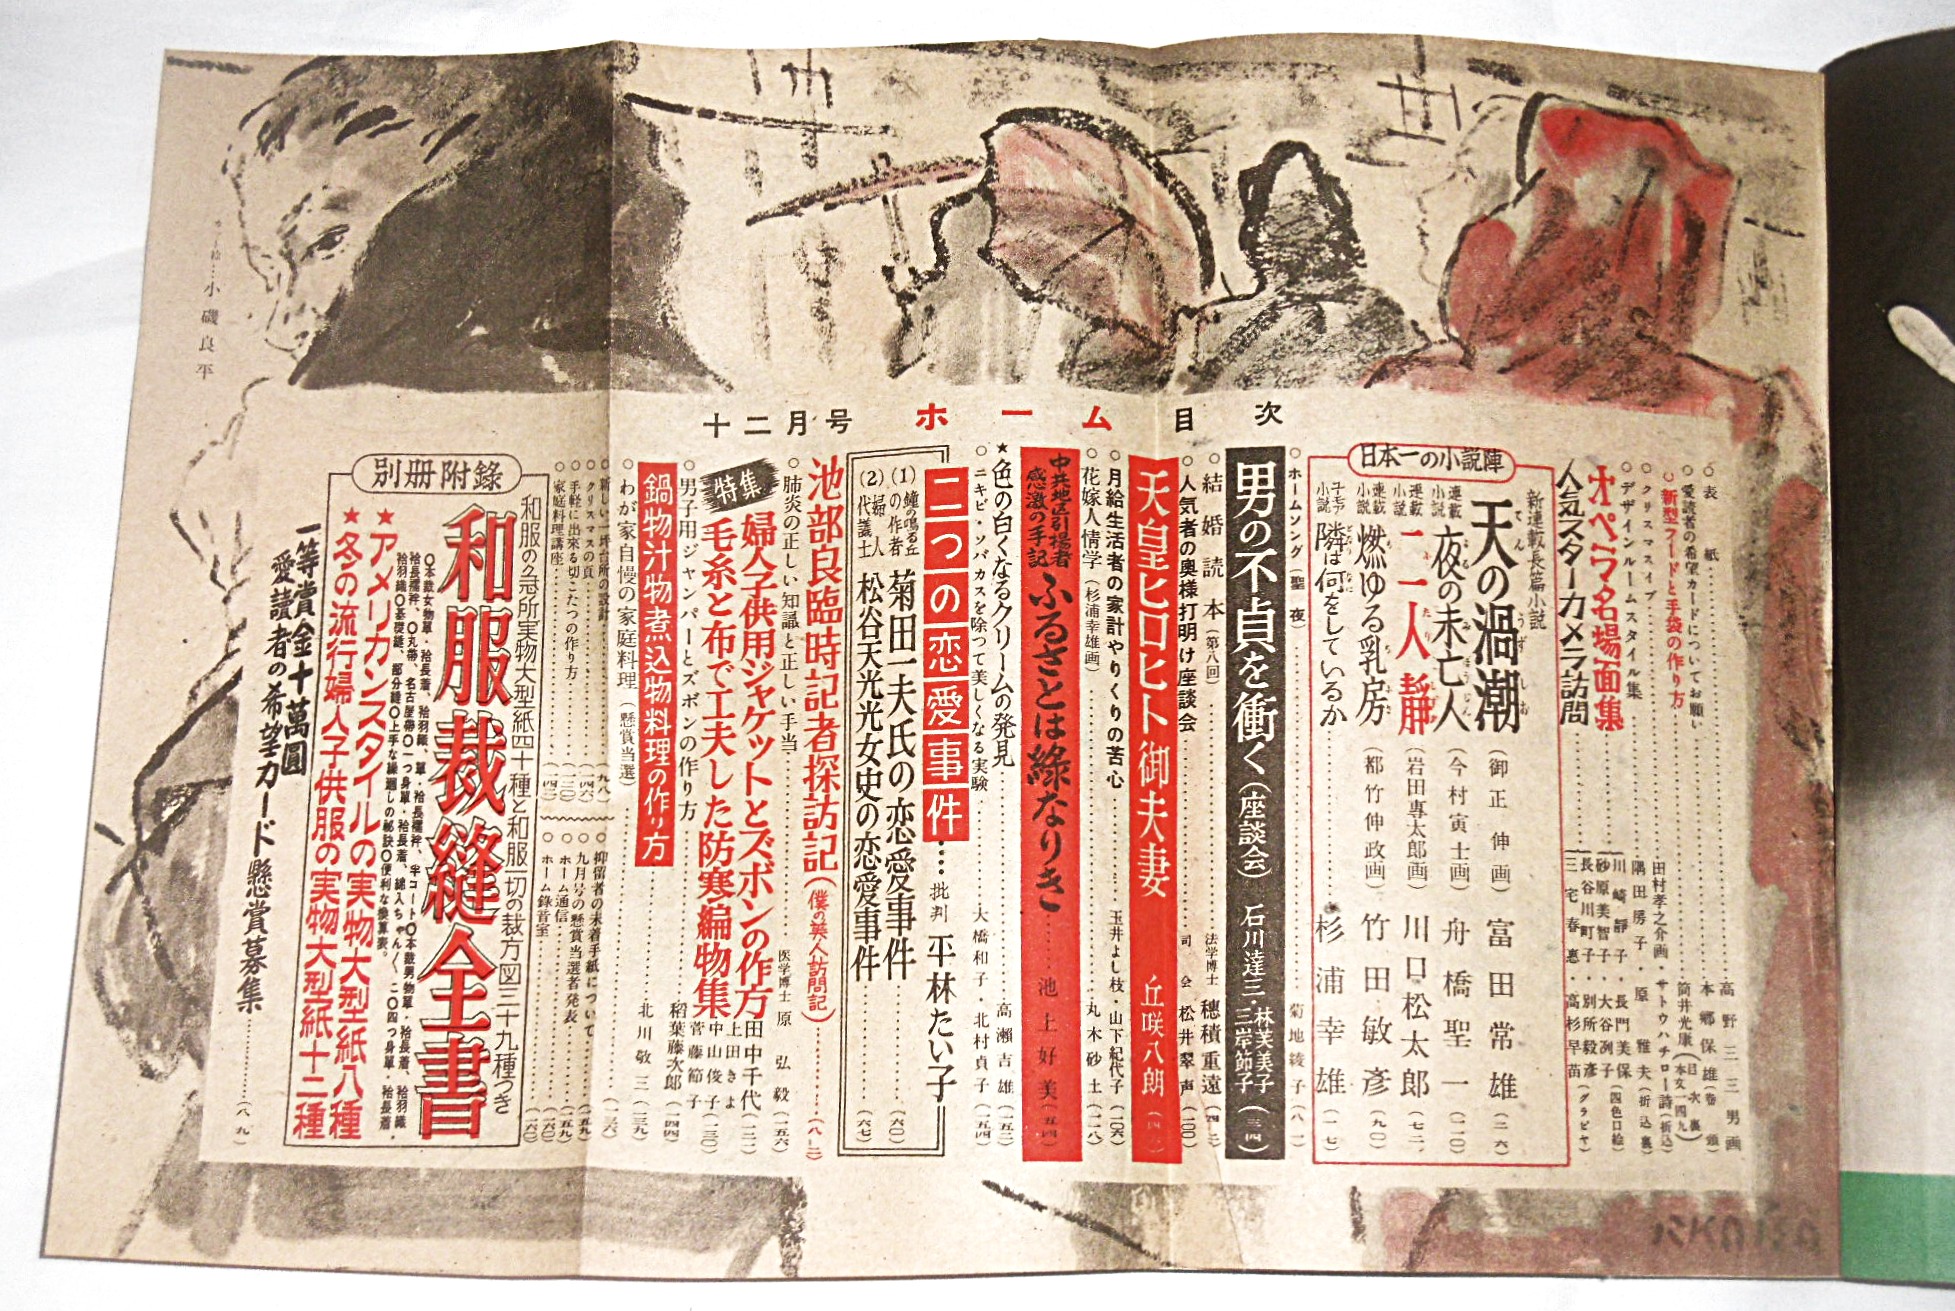 十二月号 ホーム 目次
表紙
高野三三男画
愛読者の希望カードについてお願い
本郷保雄
新型フードと手袋の作り方
筒井光康
クリスマスイブ
田村孝之介画・サトウハチロー詩
デザインルームスタイル集
隅田房子・原雅夫
オペラ名場面集
川崎靜子・長門美保
砂原美智子・大谷冽子
人気スターカメラ訪問
長谷川町子・別所毅彦
三宅春恵・高杉早苗
(グラビヤ)
日本一の小説陣
新連載長篇小説
天の渦潮
(御正伸画)
富田常雄
(二六)
連載小説
夜の未亡人
(今村寅士画)
舟橋聖一
(一一〇)
連載小説
二人靜
(岩田専太郎画)
川口松太郎
(七二)
連載小説
燃ゆる乳房
(都竹伸政画)
竹田敏彦
(九〇)
小説
隣は何をしているか
杉浦幸雄
(一一七)
ホームソング(聖夜)
菊地綾子
男の不貞を衝く(座談会)
石川達三・林芙美子・三岸節子
(三四)
結婚読本(第八回)
法学博士 穂積重遠
人気者の奥様打明け座談会
司会 松井翠声
(一〇〇)
天皇ヒロヒト御夫妻
丘咲八朗
月給生活者の家計やりくりの苦心
玉井よし枝・山下紀代子
(一〇六)
花嫁人情学(杉浦幸雄画)
丸木砂土
(一一八)
中共地区引揚者感激の手記
ふるさとは綠なりき
池上好美
(五四)
★色の白くなるクリームの発見
高瀬吉雄
(一五二)
ニキビ・ソバカスを除つて美しくなる実験
大橋和子・北村貞子
(一五四)
二つの恋愛事件
批判 平林たい子
(1)鐘の鳴る丘の作者
菊田一夫氏の恋愛事件
(六〇)
(2)婦人代議士
松谷天光光女史の恋愛事件
(六七)
池部良臨時記者探訪記
(僕の美人訪問記)
(八二)
肺炎の正しい知識と正しい手当
医学博士 原弘毅
(一五六)
特集
婦人子供用ジャケットとズボンの作方
毛糸と布で工夫した防寒編物集
田中千代
上田きよ
中山俊子
菅藤節子
男子用ジャンパーとズボンの作り方
稲葉藤次郎
(一四四)
鍋物汁物煮込物料理の作り方
北川敬三
(一三九)
わが家自慢の家庭料理(懸賞当選)
(一三六)
新しい一坪台所の設計
(九八)
クリスマスの頁
(一四六)
手軽に出来る切こたつの作り方
(一三〇)
家庭料理講座
(一四二)
抑留者の未着手紙について
(五九)
九月号の懸賞当選者発表
(一五九)
ホーム通信
(一六〇)
ホーム錄音室
(一六〇)
別册附錄
和服の急所実物大型紙四十種と和服一切の裁方図三十九種つき
和服裁縫全書
★アメリカンスタイルの実物大型紙八種
★冬の流行婦人子供服の実物大型紙十二種
一等賞金十萬圓
愛讀者の希望カード懸賞募集
(八九)
カット絵…小磯良平